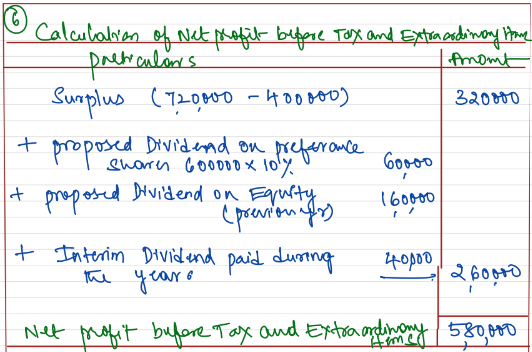 6 Calculation of Net profit before Tax and Extraordinary Item
particulars Amount
Surplus (720,000 - 400000) 320000
+ proposed Dividend on preferance
shares 600000x10% 60,000
+ proposed Dividend on Equity
(previous yr) 160000
+ Interim Dividend paid during
the year. 40,000 2,60,000
Net profit before Tax and Extraordinary
Items 5,80,000